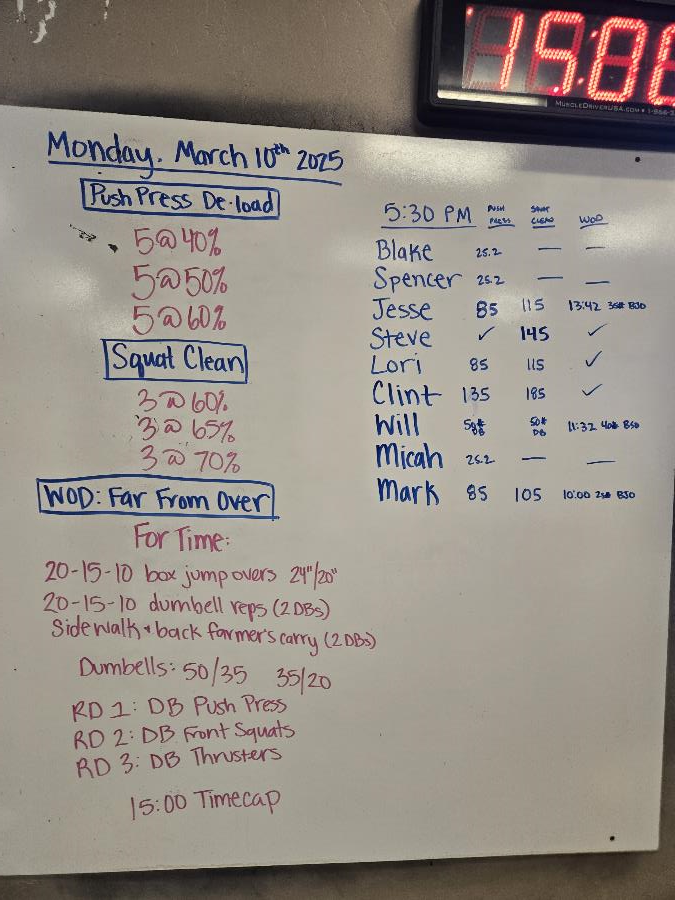 MUSCLEDRIVERUSA.COM
Monday. March 10th 2025
Push Press De-load
5@40%
5@50%
5@60%
Squat Clean
3@60%
3@65%
3@70%
WOD: Far From Over
For Time:
20-15-10 box jump overs 24"/20"
20-15-10 dumbell reps (2 DBs)
Sidewalk + back farmer's carry (2 DBs)
Dumbells: 50/35 35/20
RD 1: DB Push Press
RD 2: DB Front Squats
RD 3: DB Thrusters
15:00 Timecap
5:30 PM PUSH PRESS SQUAT CLEAN WOD
Blake 25.2 — —
Spencer 25.2 — —
Jesse 85 115 13:42 35# BJO
Steve ✓ 145 ✓
Lori 85 115 ✓
Clint 135 185 ✓
Will 50# DB 50# DB 11:32 40#
Micah 25.2 — —
Mark 85 105 10:00 BJO